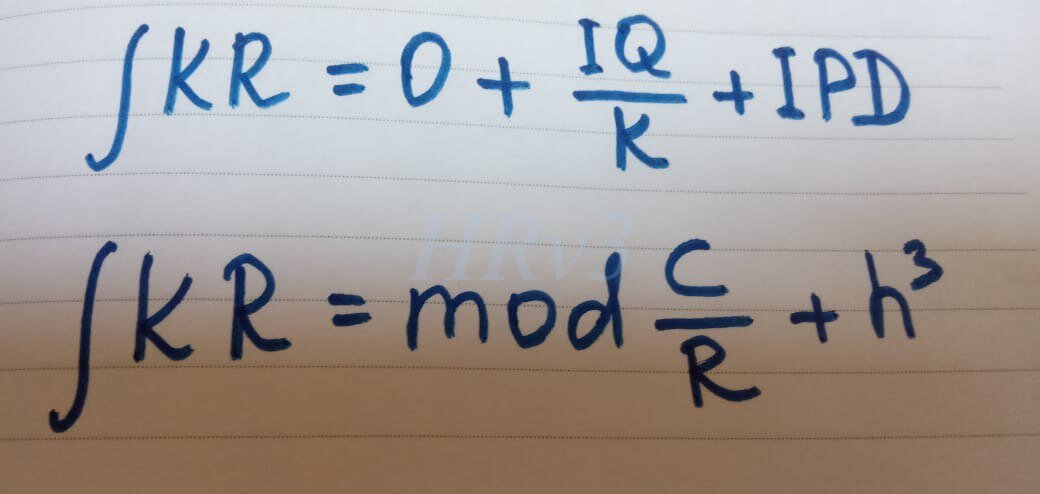 ∫KR = 0 + IQ/K + IPD
HRv3
∫KR = mod C/R + h³